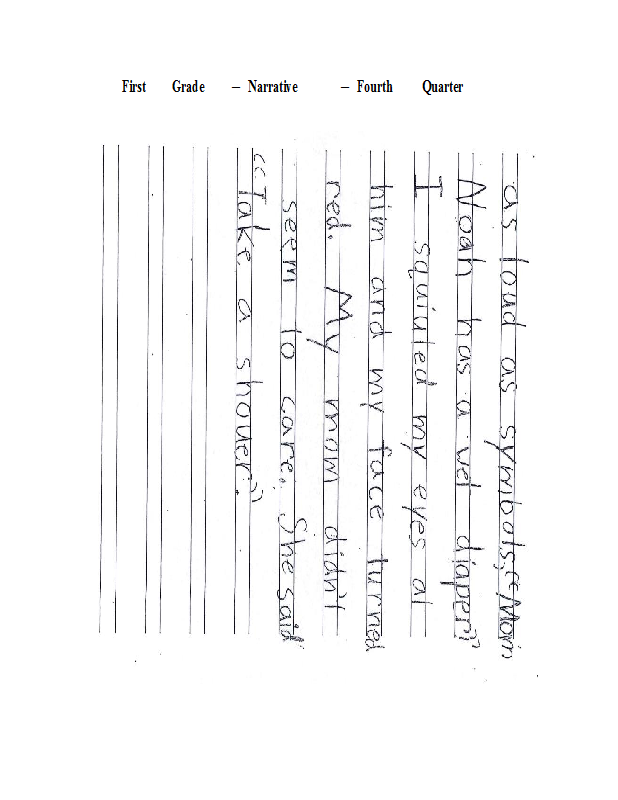 First Grade – Narrative – Fourth Quarter
as loud as symbols, "Mom
Noah has a wet diaper."
I squinted my eyes at
him and my face turned
red. My mom didn't
seem to care. She said
"Take a shower."